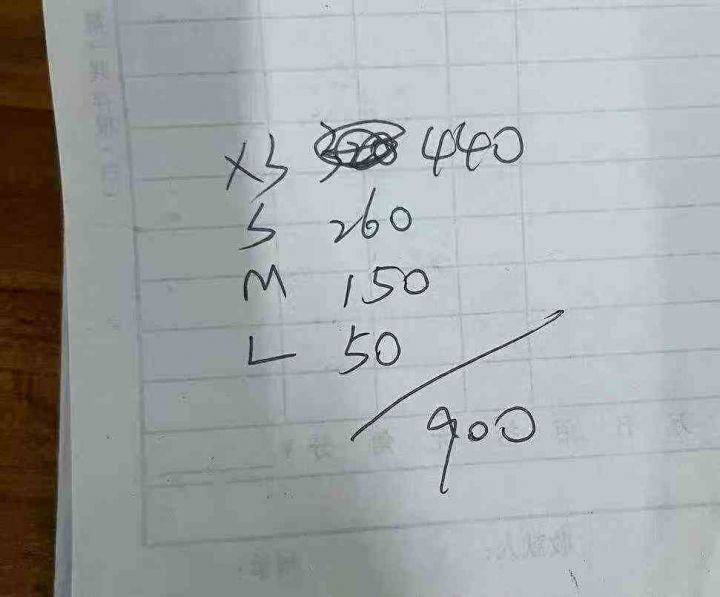 XS 440
S 260
M 150
L 50
900